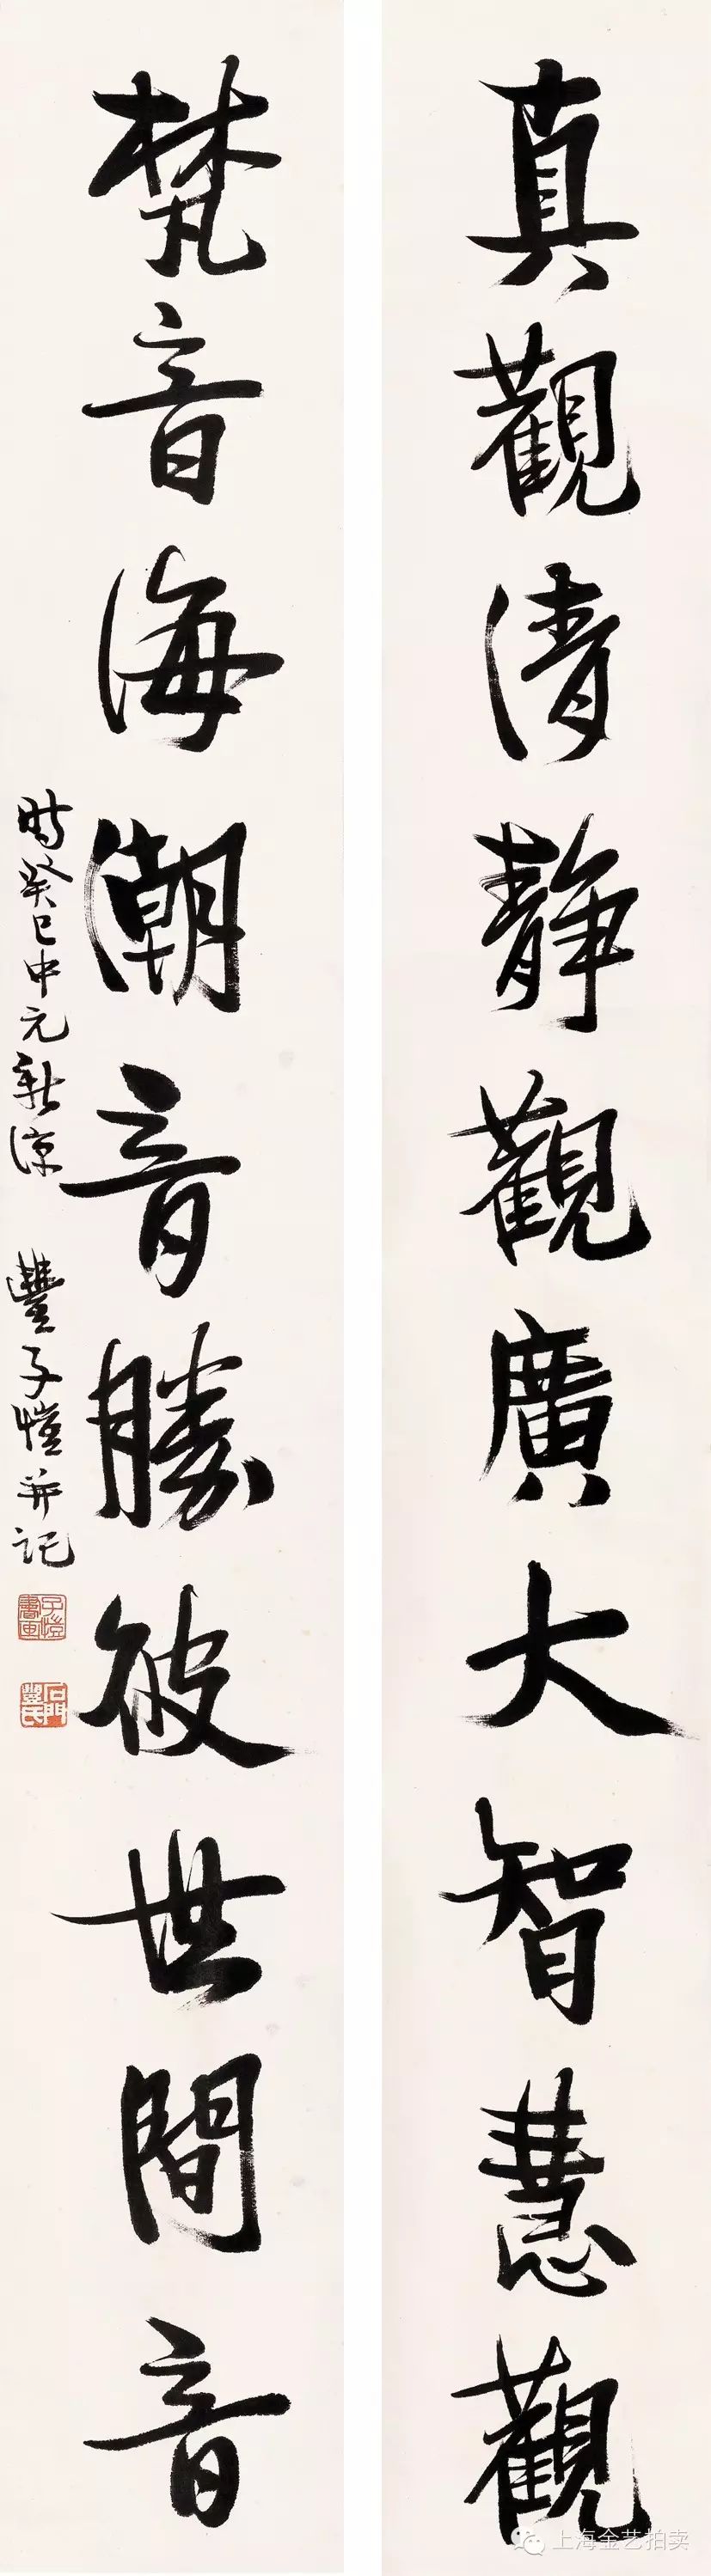 真觀清靜觀廣大智慧觀
梵音海潮音勝彼世間音
時癸巳中元新涼 豐子愷并記
子愷書画
石門豐氏
上海金艺拍卖